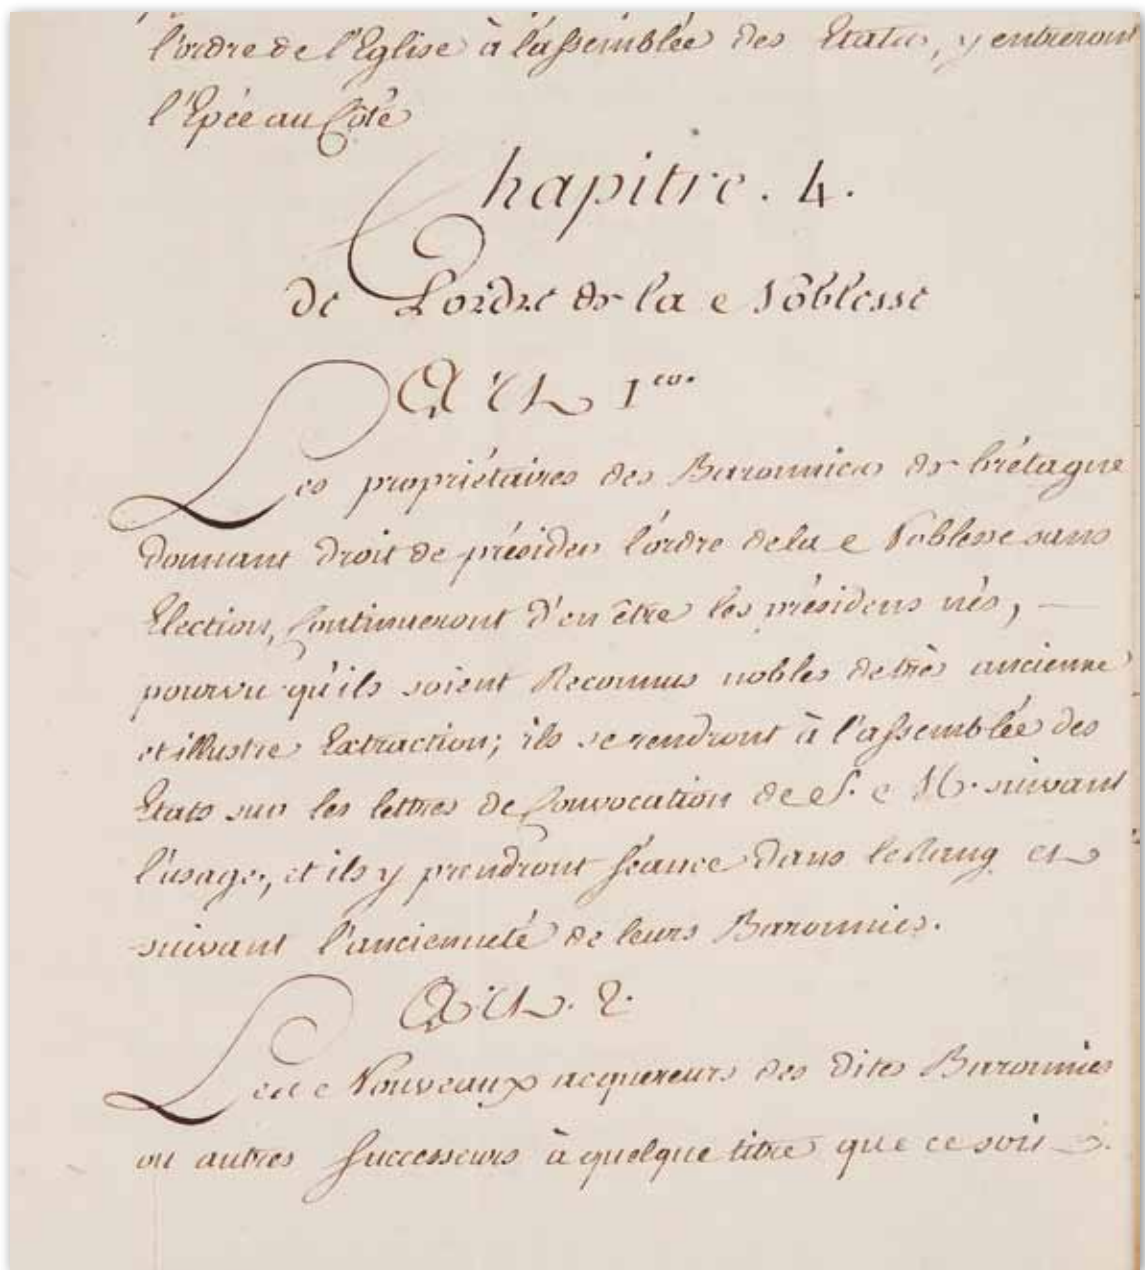 l'ordre de l'Eglise à l'assemblée des Etats, y entreront
l'Epée au Côté
Chapitre. 4.
de L'ordre de la Noblesse
Art 1er.
Les propriétaires des Baronnies de brétagne
donnant droit de présider l'ordre de la Noblesse sans
Election, Continueront d'en être les présidens nés, —
pourvu qu'ils soient Reconnus nobles de très ancienne
et illustre Extraction; ils se rendront à l'assemblée des
Etats sur les lettres de Convocation de S. M. suivant
l'usage, et ils y prendront Séance dans le Rang et
suivant l'ancienneté de leurs Baronnies.
Art. 2.
Les Nouveaux acquereurs des dites Baronnies
ou autres Successeurs à quelque titre que ce soit